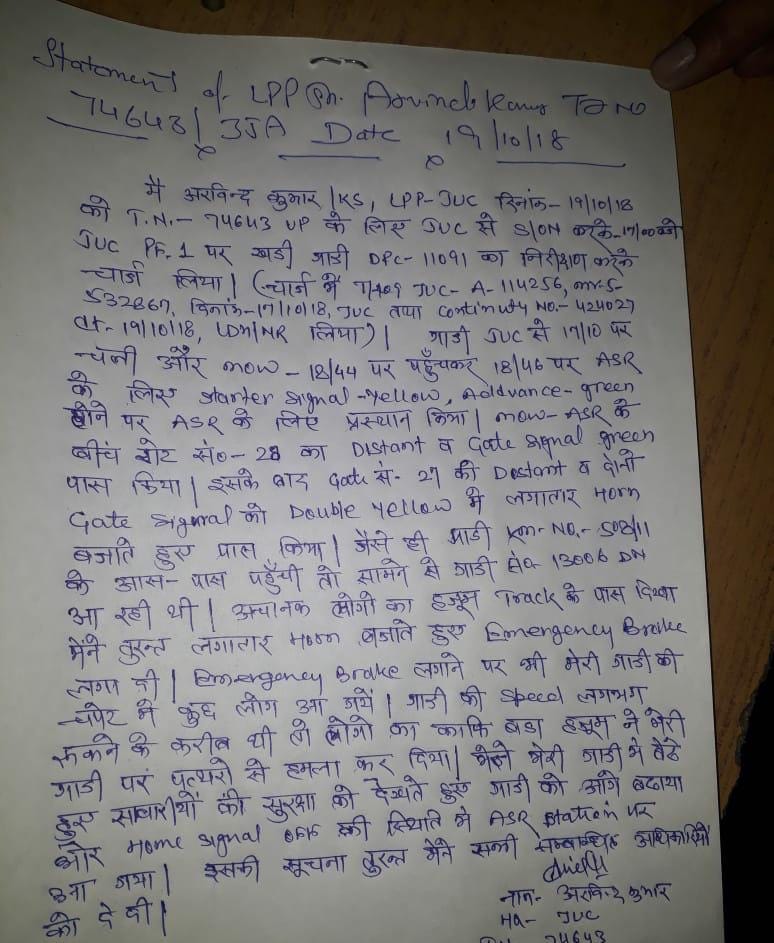 Statement of LPP Sh. Arvind Kumar TR NO
74643 / JJA Date 19/10/18
मै अरविन्द कुमार /KS, LPP-JUC दिनांक- 19/10/18
को T.N.- 74643 UP के लिए JUC से S/ON करके-17/00 बजे
JUC PF. 1 पर खडी गाडी DPC- 11091 का निरीक्षण करके
चार्ज लिया। (चार्ज मे JUC- A- 114256,
532867, दिनांक-17/10/18, JUC तथा Continuity NO.- 424027
dt.- 19/10/18, LDH/NR लिया)। गाडी JUC से 17/10 पर
चली और mow - 18/44 पर पहुँचकर 18/46 पर ASR
के लिए starter signal -yellow, Addvance- green
होने पर ASR के लिए प्रस्थान किया। mow- ASR के
बीच गेट सं०- 28 का Distant व Gate signal green
पास किया। इसके बाद Gate सं- 27 की Distant व दोनो
Gate signal को Double yellow मे लगातार Horn
बजाते हुए पास किया। जैसे ही गाडी Km- NO.- 508/11
के आस- पास पहुँची तो सामने से गाडी सं० 13006 DN
आ रही थी। अचानक लोगो का हजूम Track के पास दिखा
मैंने तुरन्त लगातार Horn बजाते हुए Emergency Brake
लगा दी। Emergency Brake लगाने पर भी मेरी गाडी की
चपेट मे कुछ लोग आ गये। गाडी की speed लगभग
रूकने के करीब थी तो लोगो का काफि बडा हजूम ने मेरी
गाडी पर पत्थरो से हमला कर दिया। मैने मेरी गाडी मे बैठे
हुए सवारीयों की सुरक्षा को देखते हुए गाडी को आगे बढाया
और Home signal OFF की स्थिति मे ASR station पर
आ गया। इसकी सूचना तुरन्त मैने सभी सम्बन्धित अधिकारियों
को दे दी।
नाम- अरविन्द कुमार
HQ- JUC
74643